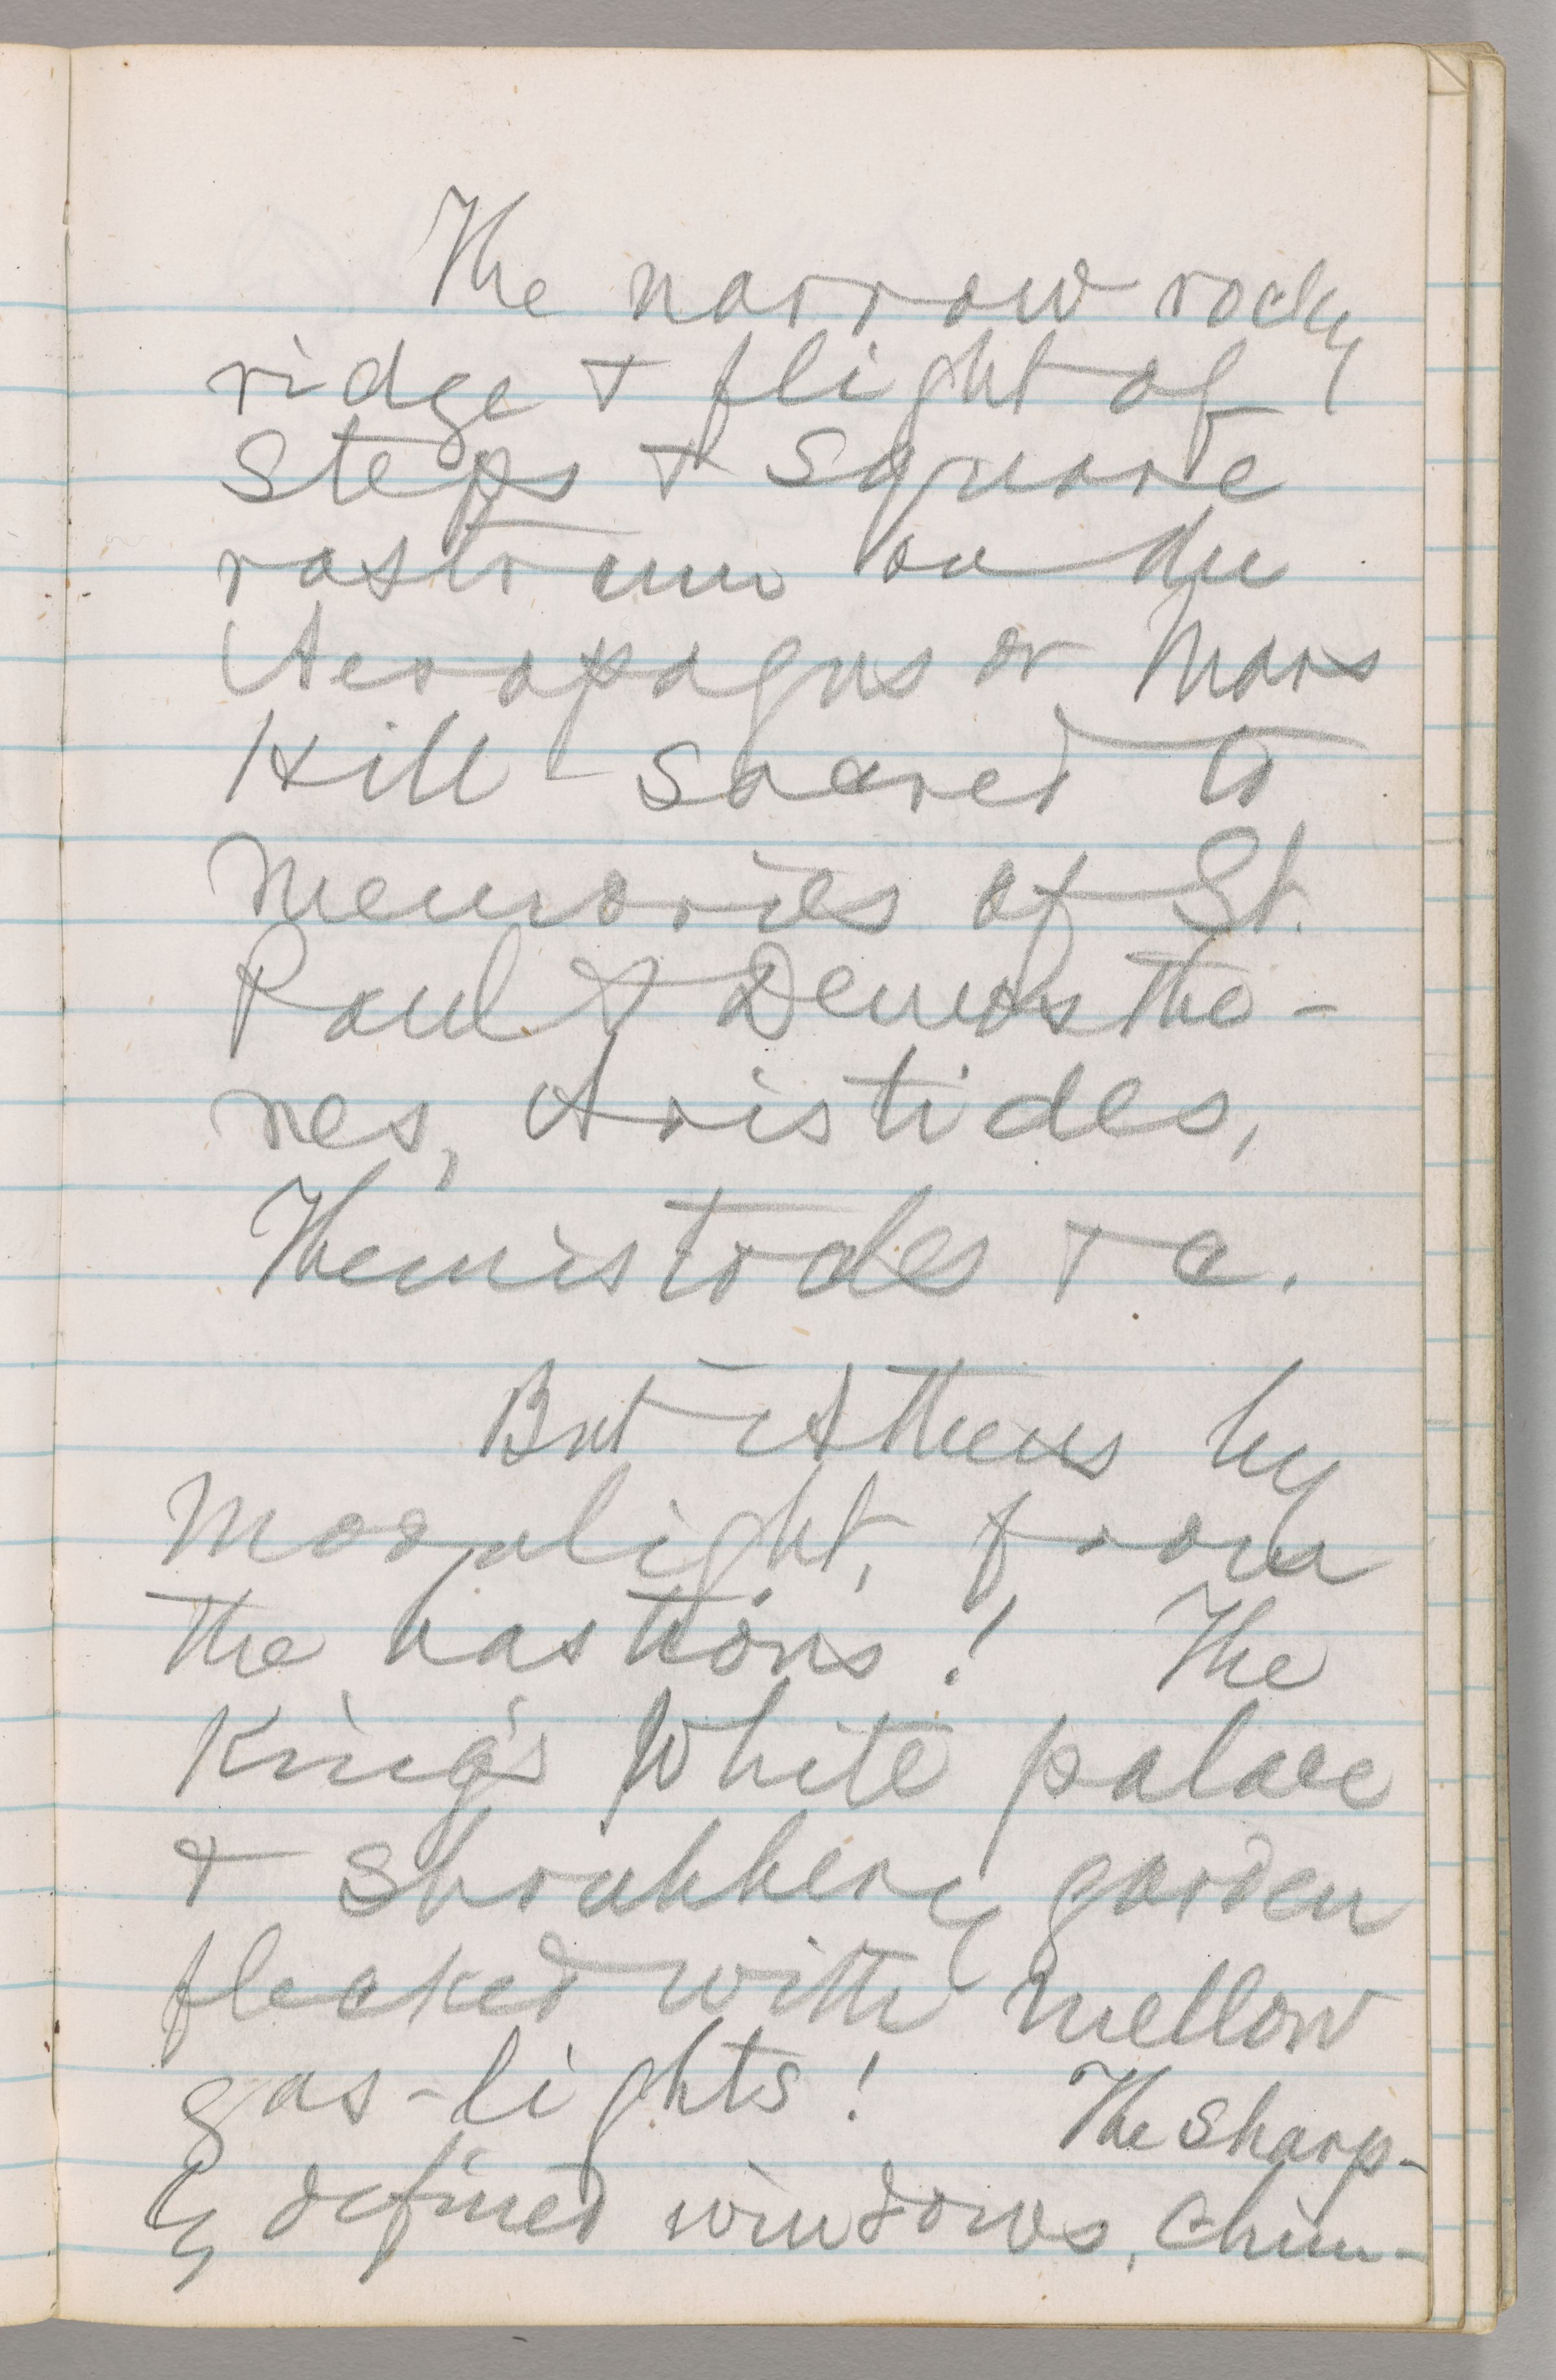 The narrow rocky
ridge & flight of
Steps & Square
rostrum on the
Aeropagus or Mars
Hill - Sacred to
Memories of St.
Paul & Demosthe-
nes, Aristides,
Themistocles & c.
But Athens by
Moonlight, from
the bastions! The
King's White palace
& Shrubbery garden
flecked with mellow
gas-lights! The Sharp-
ly defined windows, Chim-